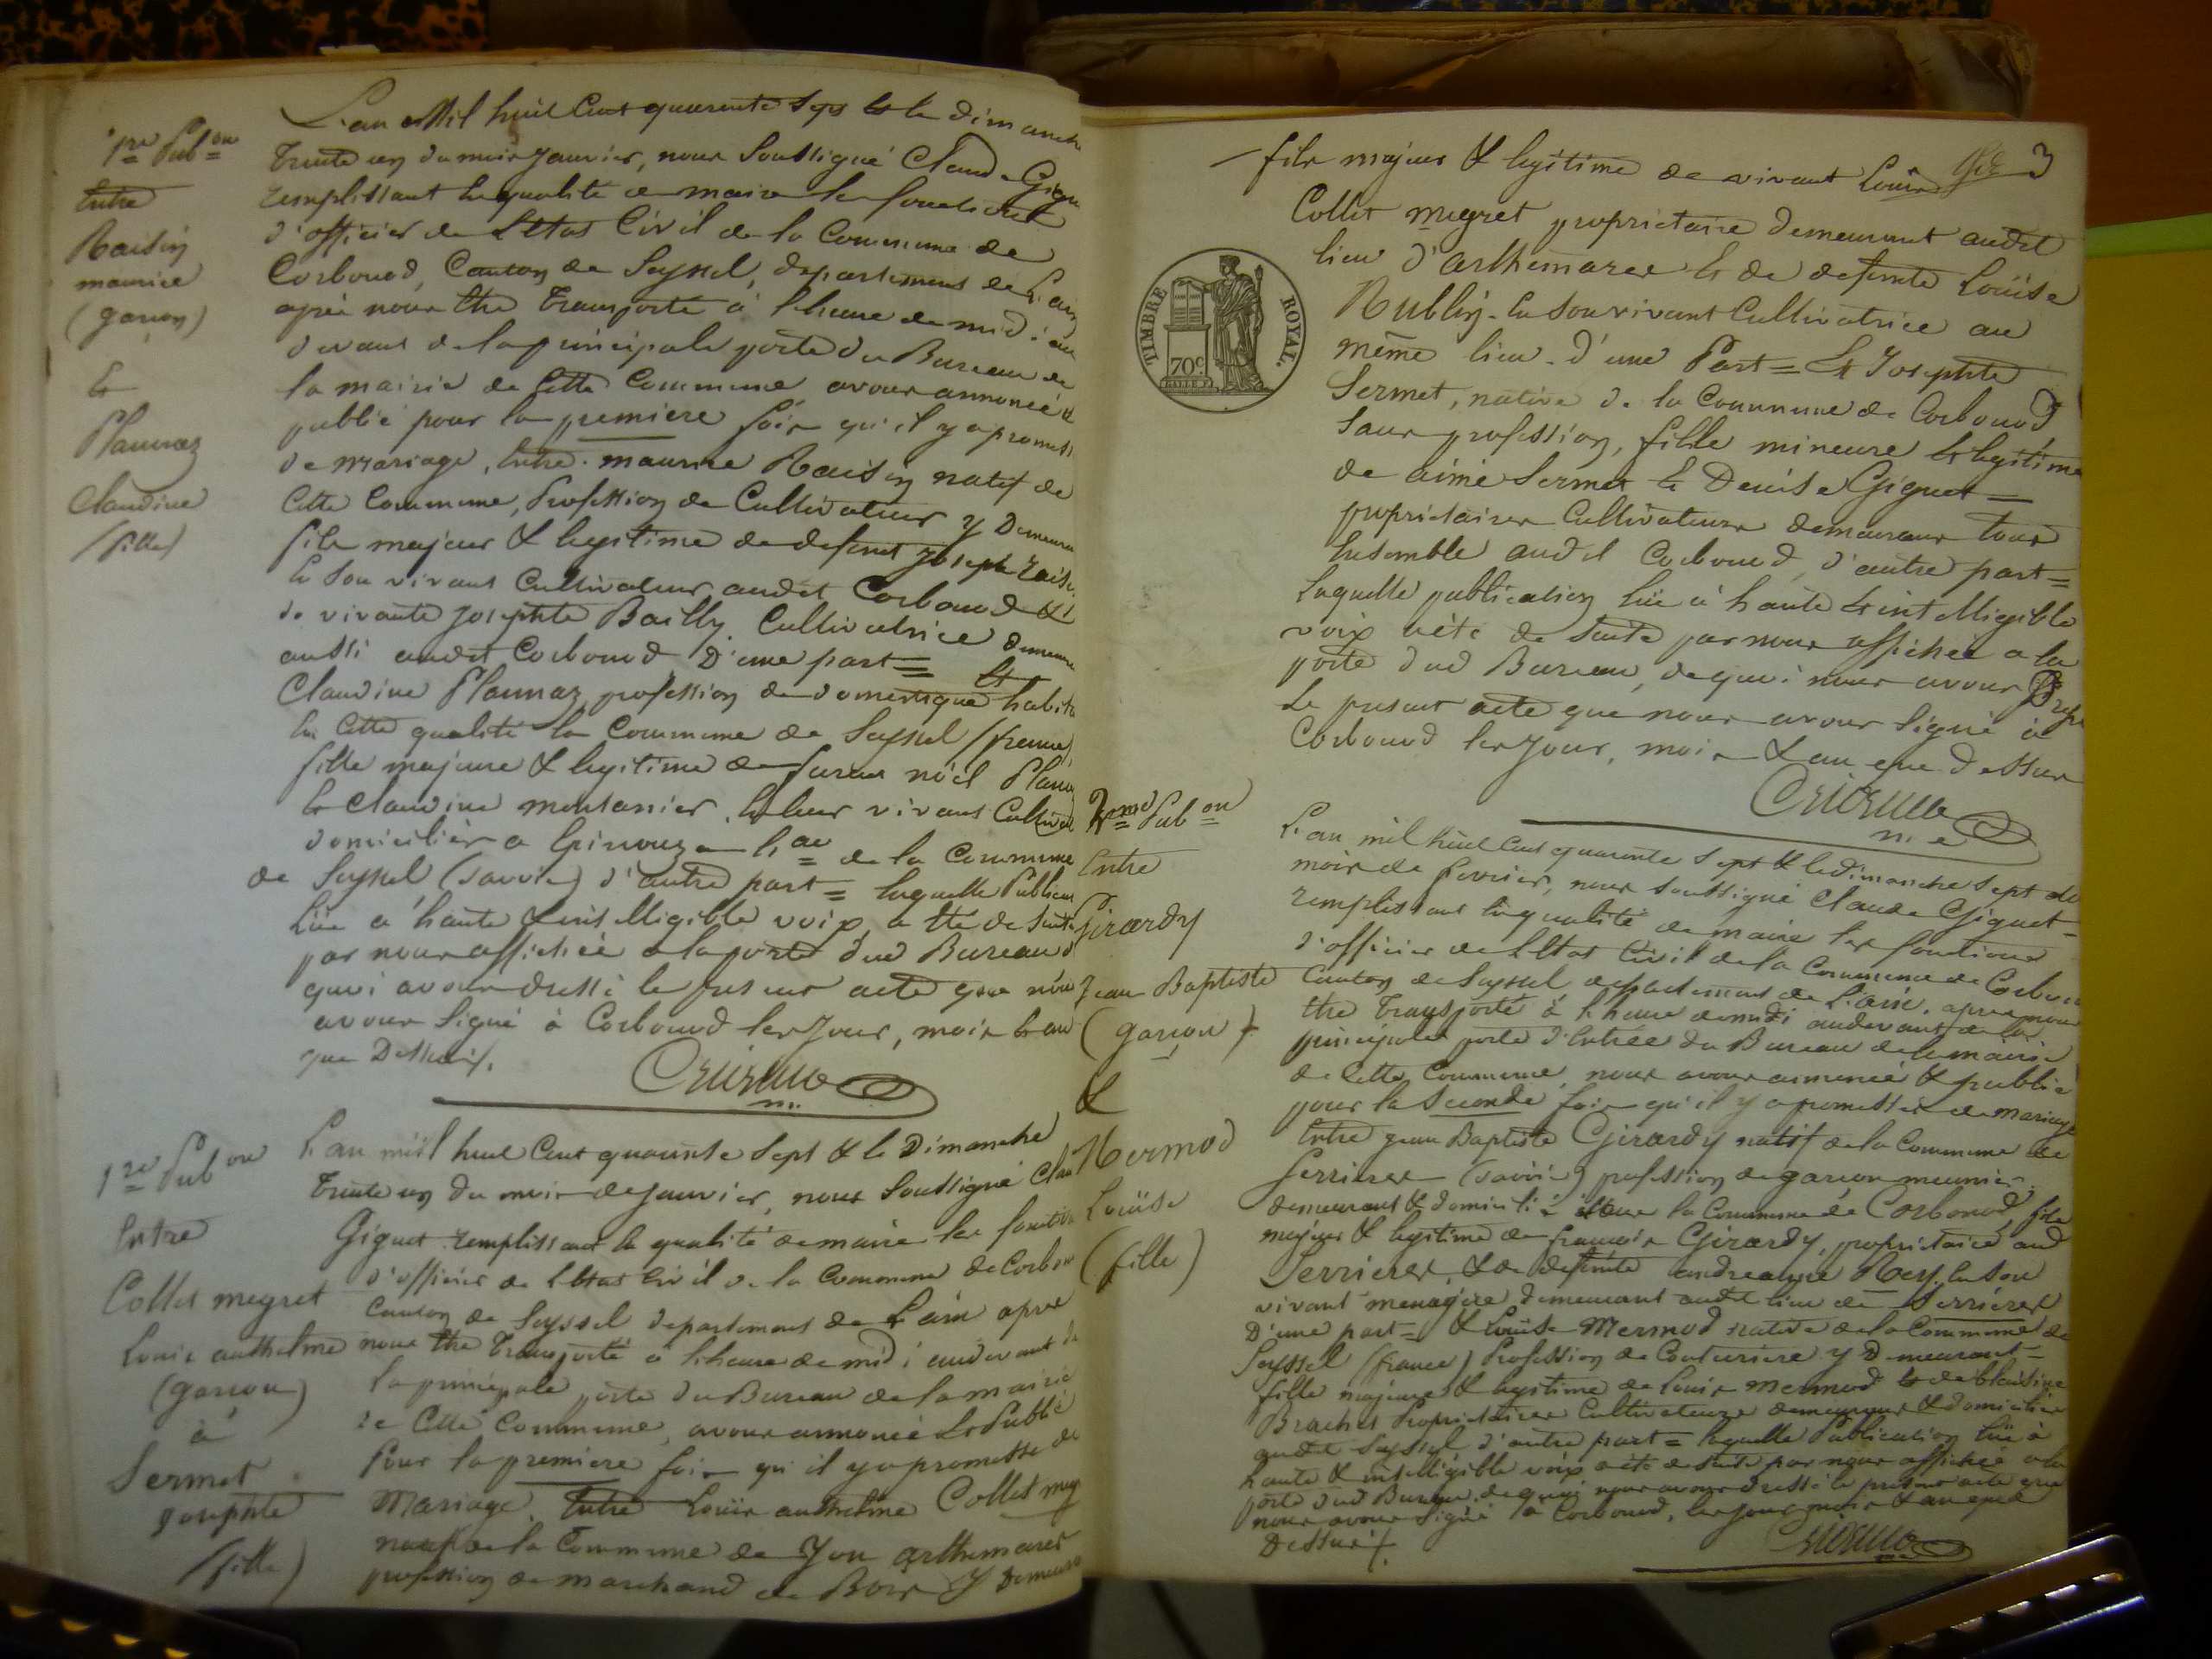 1re Pubon
Entre
Raisin
maurice
(garçon)
&
Plannaz
Claudine
(fille)
L'an Mil huit Cent quarante Sept & le dimanche
trente un du mois Janvier, nous Soussigné Claude Gigu
remplissant la qualité de maire les fonctions
d'officier de L'Etat Civil de la Commune de
Corbonod, Canton de Seyssel, département de L'ain
après nous être transporté à l'heure de midi au
devant de la principale porte du Bureau de
la mairie de Cette Commune avons annoncé &
publié pour la première fois qu'il y a promess
de mariage, Entre maurice Raisin natif de
Cette Commune, Profession de Cultivateur y Demeura
fils majeur & legitime de defunt Joseph rais
En Son vivant Cultivateur audit Corbonod &
de vivante Josephte Bailly Cultivatrice demeura
aussi audit Corbonod D'une part = Et
Claudine Plannaz, profession de domestique habita
En Cette qualité la Commune de Seyssel (france)
fille majeure & legitime de noël Plann
& Claudine montanier, En leur vivant Cultivat
domiciliés a de la Commune
de Seyssel (Savoie) d'autre part = laquelle Publicat
lüe à haute & intelligible voix a été de Suite
par nous affichée a la porte dud Bureau d
quoi avons dressé le present acte que nous
avons Signé à Corbonod les Jour, mois & an
que Dessus.
1re Pubon
Entre
Collet megret
Louis anthelme
(garçon)
à
Sermet
Josephte
(fille)
L'an mil huit Cent quarante Sept & le Dimanche
trente un du mois de Janvier, nous Soussigné Clau
Giguet remplissant la qualité de maire les fonctio
d'officier de L'Etat Civil de la Commune de Corbon
Canton de Seyssel departement de L'ain après
nous être transporté à l'heure de midi audevant de
la principale porte du Bureau de la mairie
de Cette Commune, avons annoncé & Publié
Pour la première fois qu'il y a promesse de
Mariage, Entre Louis anthelme Collet meg
natif de la Commune de Yon artemare
profession de marchand de Bois y Demeura
3
fils majeur & legitime de vivant Louis
Collet megret proprietaire demeurant audit
lieu d'arthemare & de defunte Loüise
Rublin En Son vivant Cultivatrice au
même lieu d'une Part = Et Josephte
Sermet, native de la Commune de Corbonod
Sans profession, fille mineure & legitime
de aimé Sermet & Denise Giguet =
proprietaires Cultivateurs demeurant tous
Ensemble audit Corbonod, d'autre part =
laquelle publication lüe à haute & intelligible
voix a été de Suite par nous affichée a la
porte dud Bureau, de quoi nous avons
Le present acte que nous avons Signé à
Corbonod les Jour, mois & an que dessus
TIMBRE ROYAL
70c.
2me Pubon
Entre
Girardy
Jean Baptiste
(garçon)
&
Mermod
Loüise
(fille)
L'an mil huit Cent quarante Sept & le dimanche Sept du
mois de fevrier, nous Soussigné Claude Giguet =
remplissant la qualité de maire les fonctions
d'officier de L'Etat Civil de la Commune de Corbon
Canton de Seyssel departement de L'ain, après nous
être transporté à l'heure de midi audevant de la
principale porte d'Entrée du Bureau de la mairie
de Cette Commune, nous avons annoncé & publié
pour la Seconde fois qu'il y a promesse de mariage
Entre Jean Baptiste Girardy natif de la Commune de
Serrieres (Savoie) profession de garçon meunier
demeurant & domicilié la Commune de Corbonod, fils
majeur & legitime de françois Girardy, proprietaire aud
Serrieres, & de defunte Rey En Son
vivant menagère demeurant audit lieu de Serrieres
D'une part = & Loüise Mermod native de la Commune de
Seyssel (france) Profession de Couturiere y Demeurant =
fille majeure & legitime de Louis Mermod & de blaisine
Brachet Proprietaires Cultivateurs demeurant & domiciliés
audit Seyssel d'autre part = laquelle Publication lüe à
haute & intelligible voix a été de Suite par nous affichée a la
porte dud Bureau, de quoi nous avons dressé le present acte que
nous avons Signé à Corbonod, les jour mois & an que
Dessus.